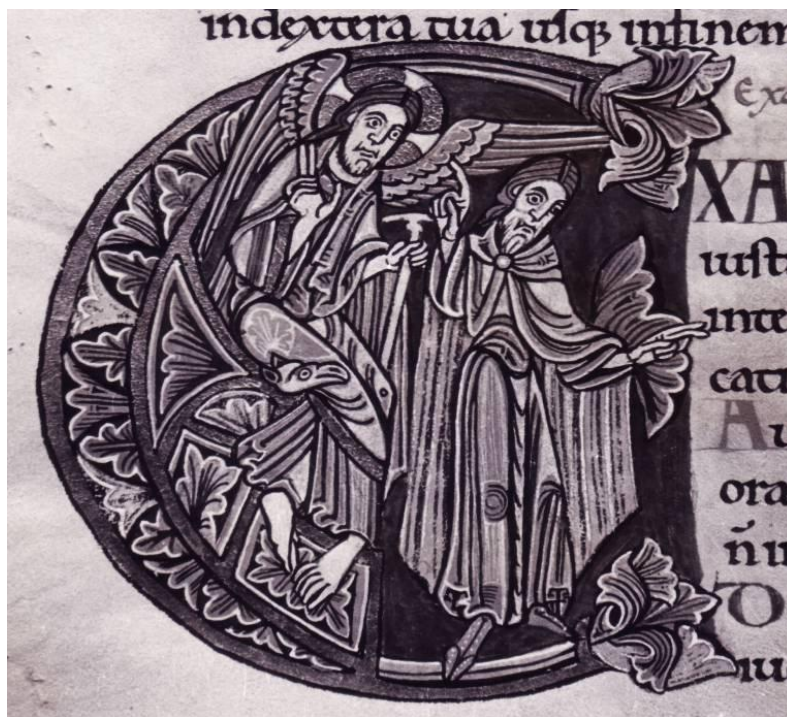 indextera tua usq; infinem
Exa
EXA
iusti
inte
cati
Au
ora
ñ in
D
iu